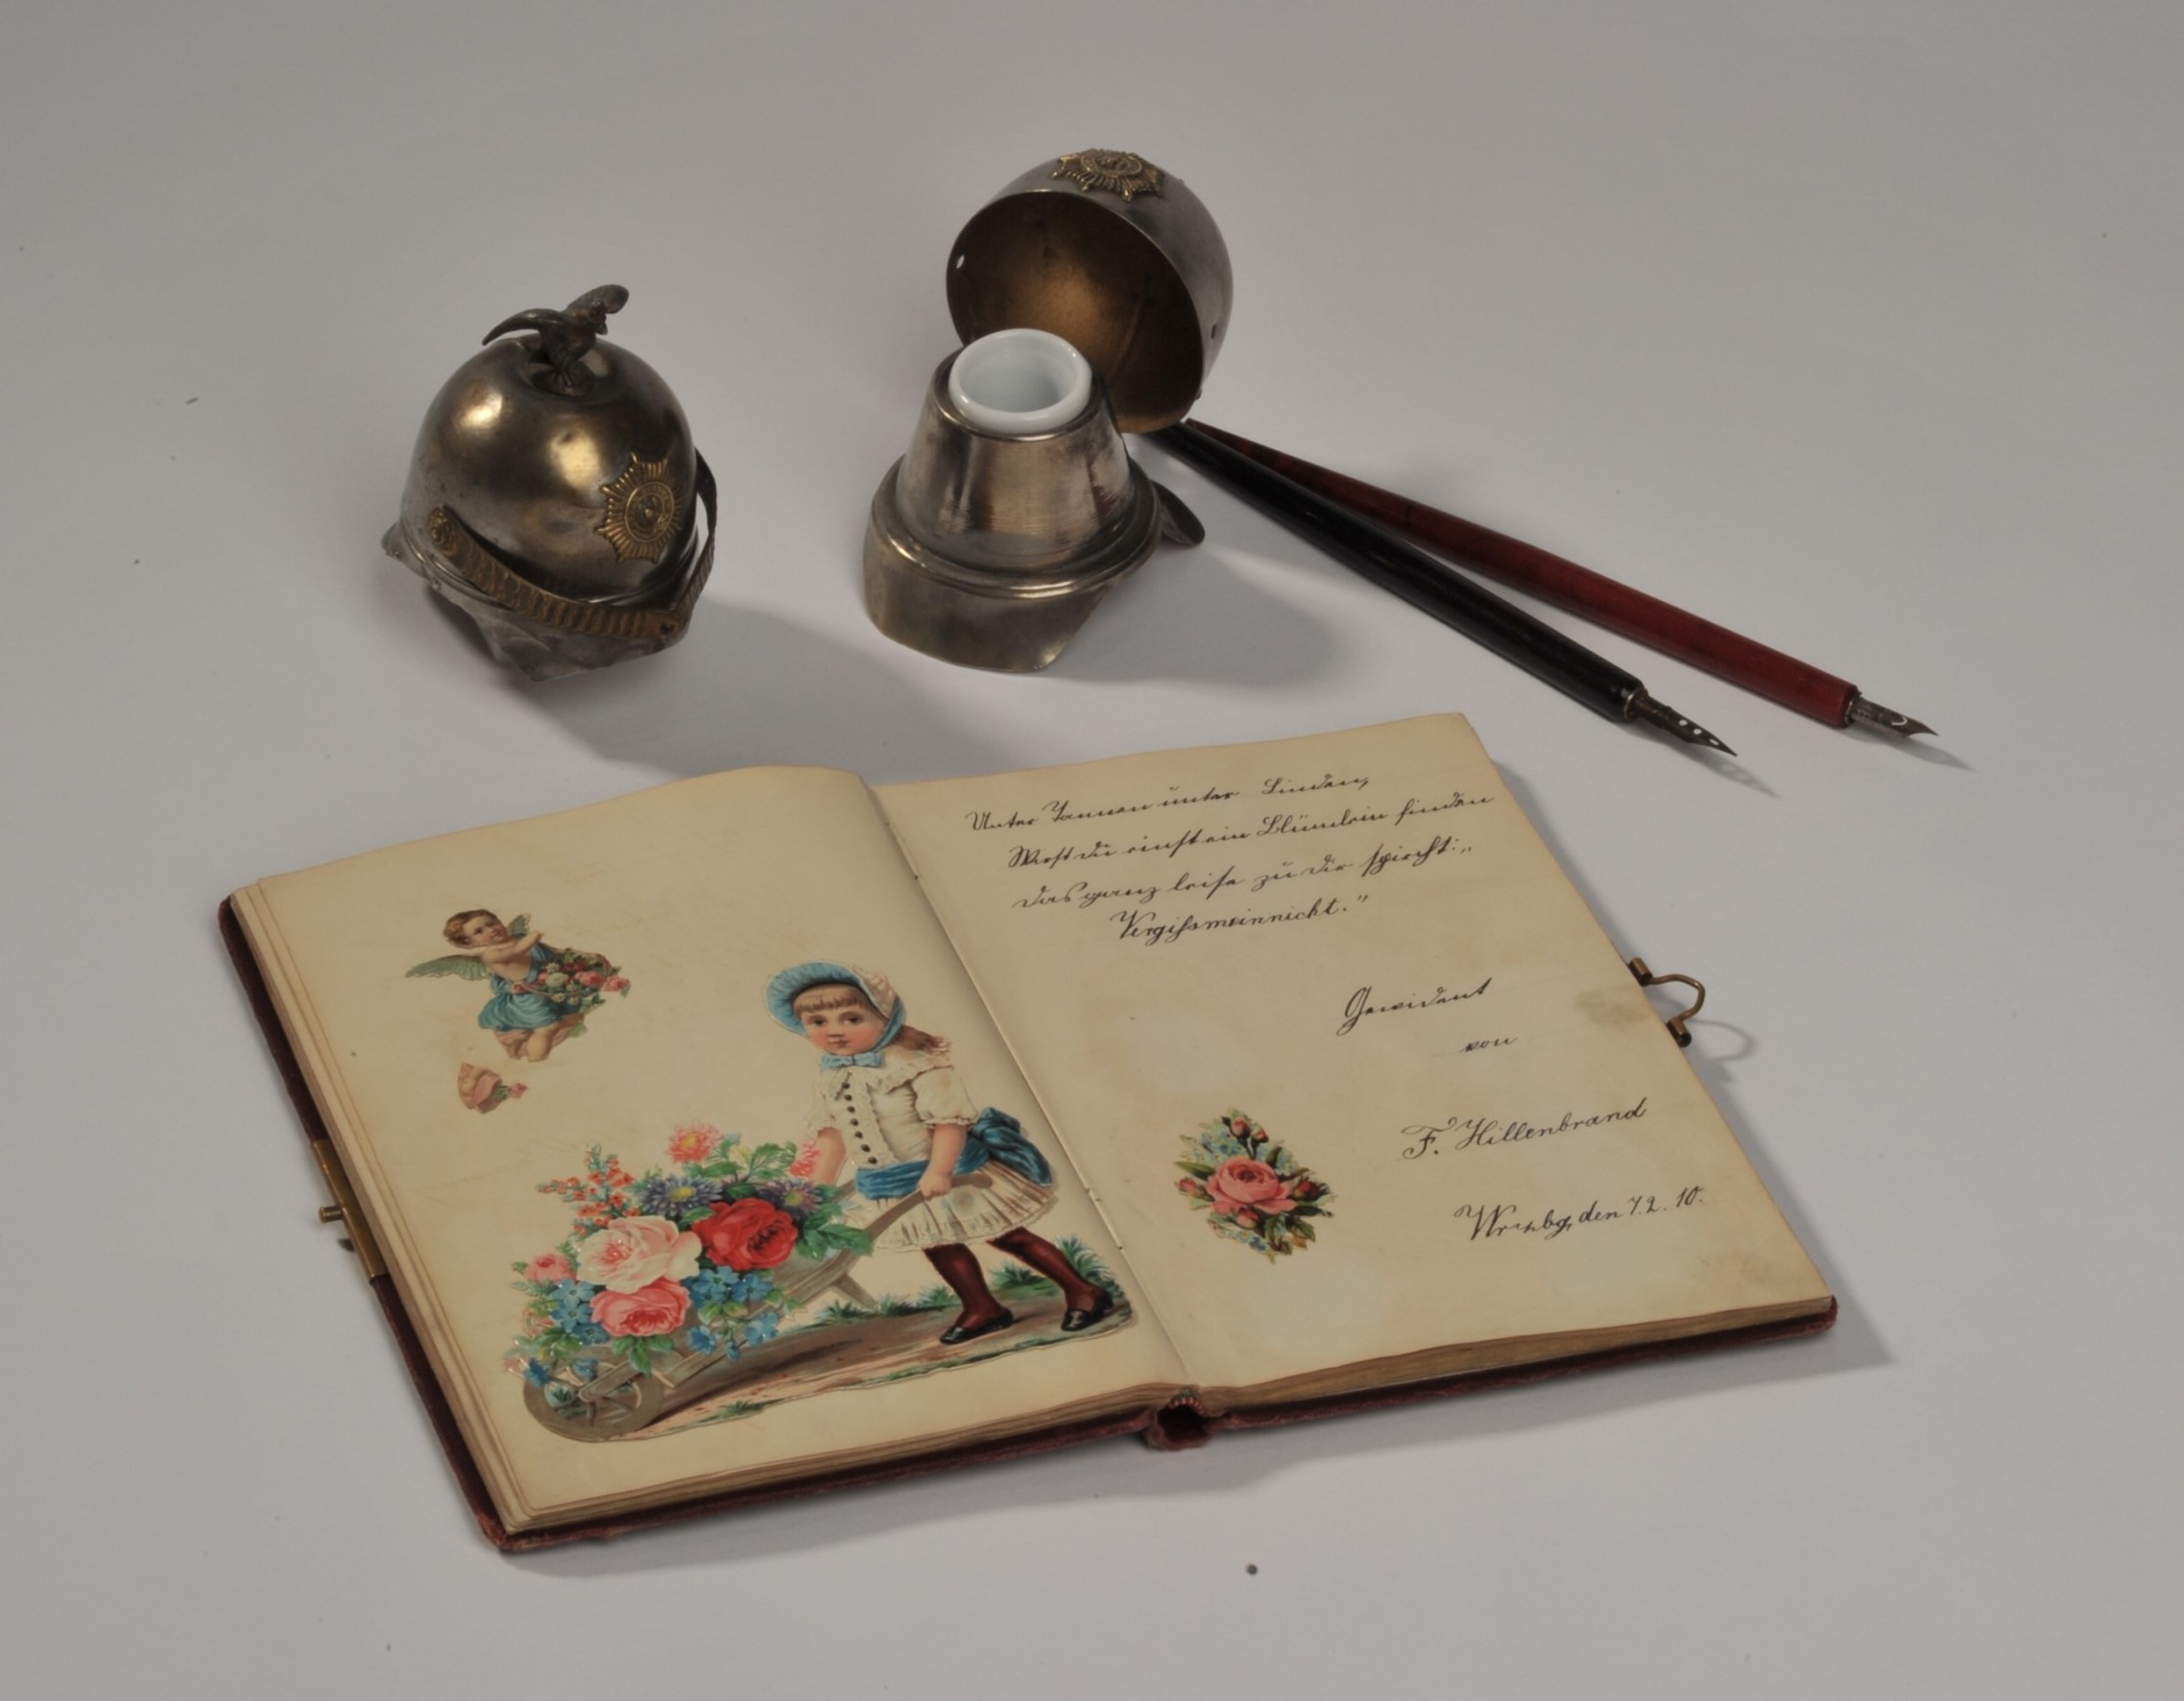 Unter Tannen unter Linden,
Wirst du einst ein Blümlein finden
das ganz leise zu dir spricht: „
Vergissmeinnicht."
Gewidmet
von
F. Hillenbrand
den 7.2.10.